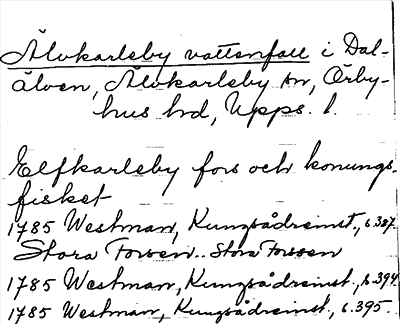 Älvkarleby vattenfall i Dal-
älven, Älvkarleby sn, Örby-
hus hd, Upps. l.
Elfkarleby fors och konungs-
fisket
1785 Westman, Kungsådreinst., s. 387.
Stora Forsen.. Stora Forssen
1785 Westman, Kungsådreinst., s. 394.
1785 Westman, Kungsådreinst., s. 395.